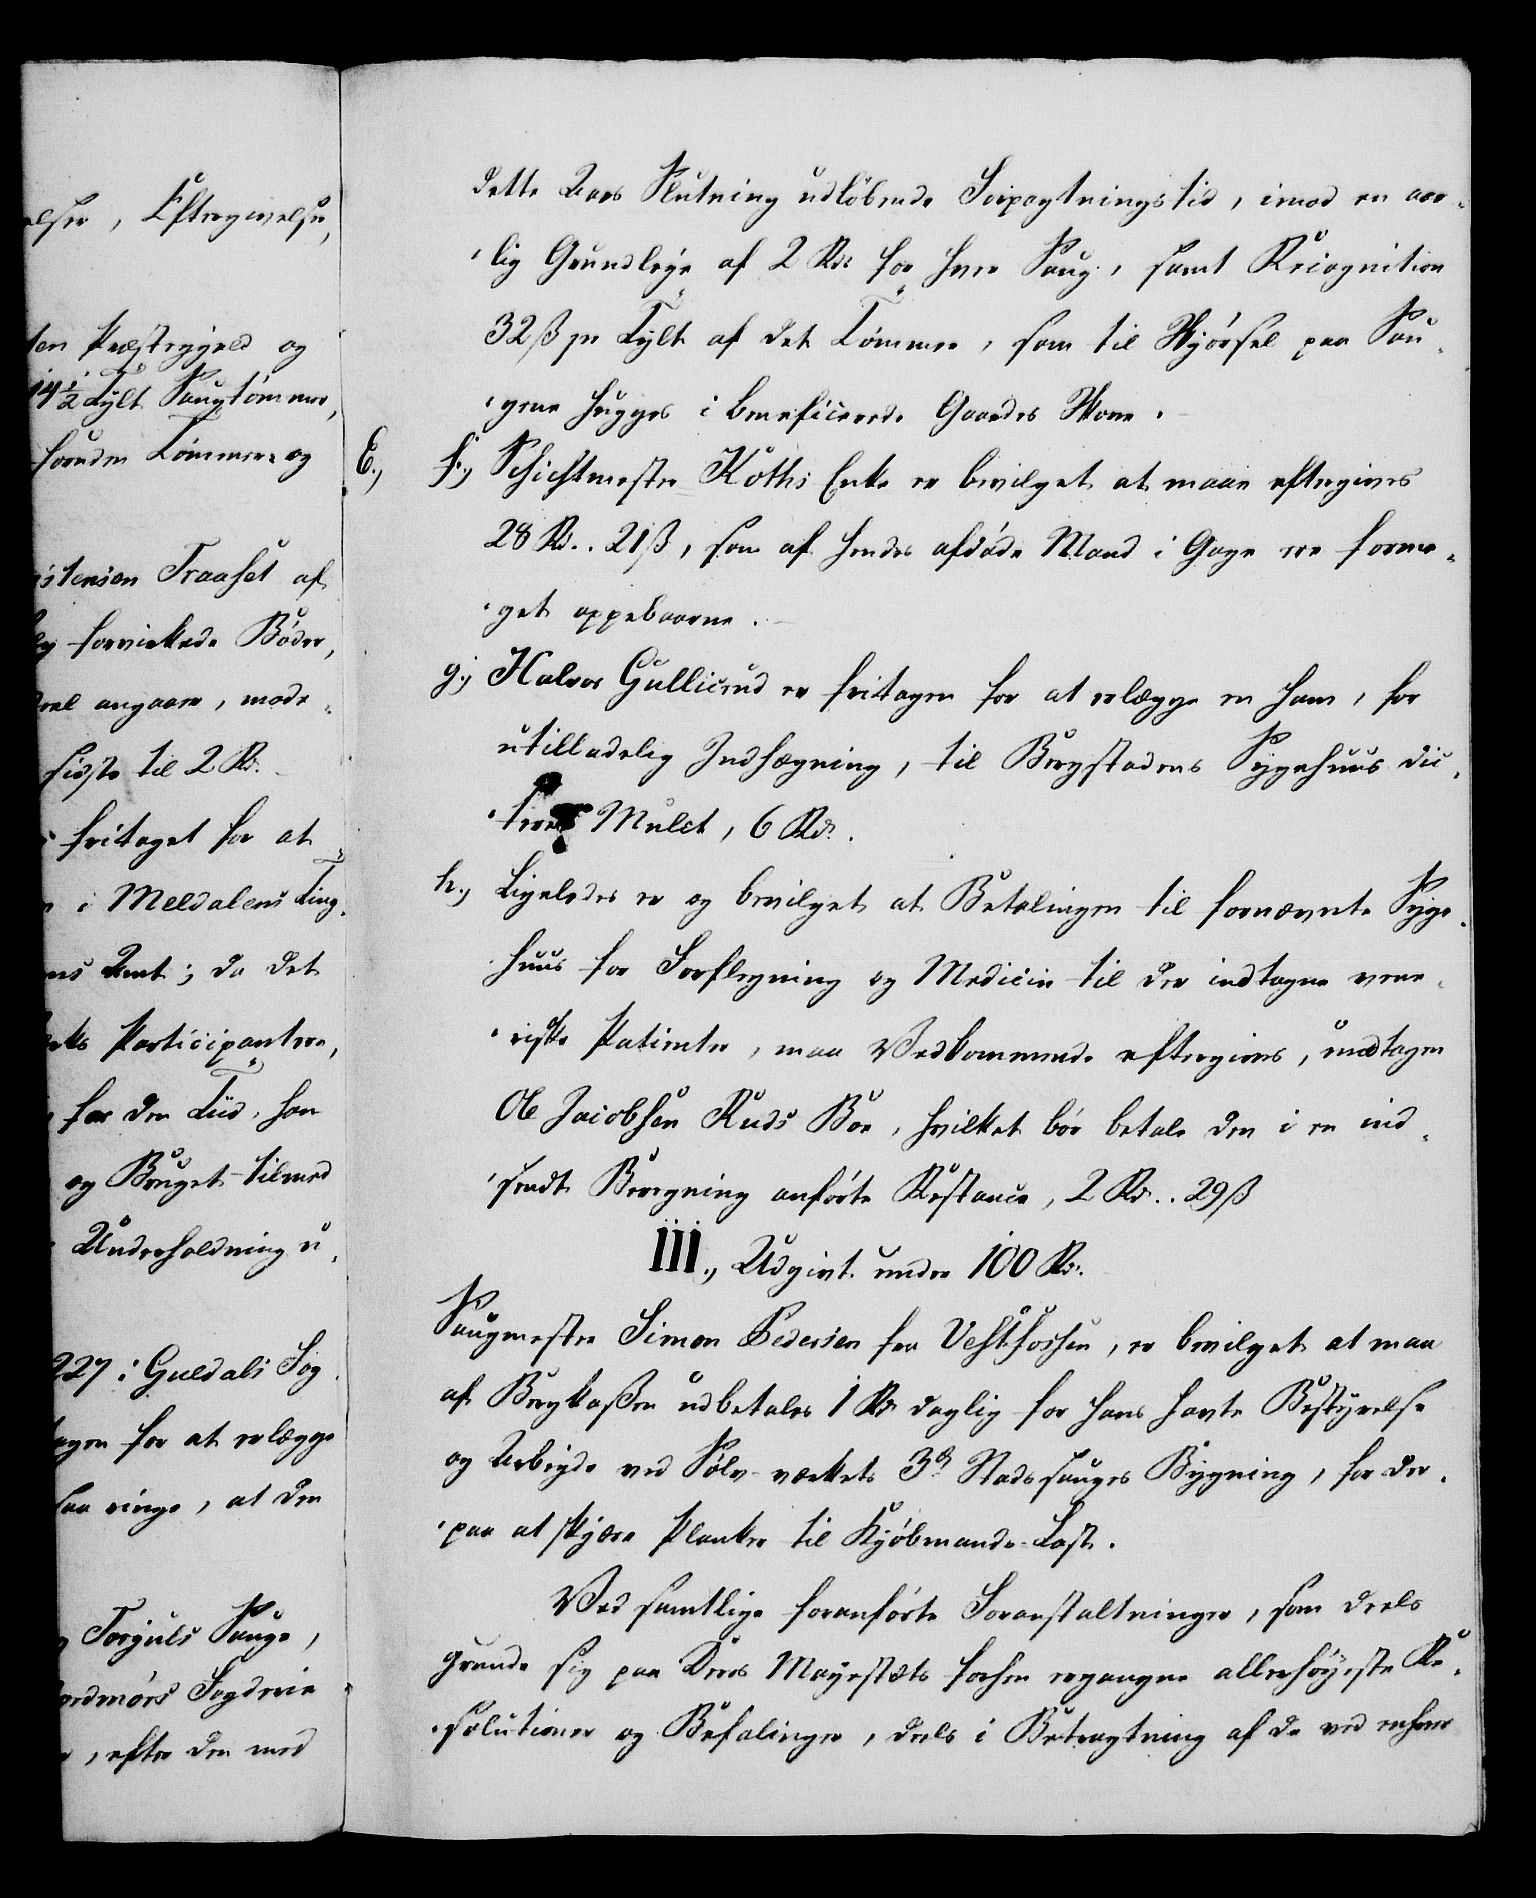 elser, Eftergivelse,
ten Præstegield og
14½ Tylt Saugtømmer,
foruden Tømmer- og
istensen Traaset af
forvirkede Bøder,
eel angaaer, mode-
sidste til 2 Rd.
fritaget for at
i Meldalens Ting-
ns Amt; da det
erks Participantere,
for den Tiid, han
og Bruget tilmed
Underholdning u-
227 i Guldals Fog-
agen for at erlægge
saa ringe, at den
Torjuls Sauge,
ordmørs Fogderie
, efter den med
dette Aars Slutning udløbende Forpagtningstid, imod en aar-
-lig Grundleye af 2 Rd. for hver Saug, samt Recognition
32 ß pr Tylt af det Tømmer, som til Skjørsel paa Sau-
-gene hugges i beneficerede Gaardes Skove.
E., f., Schichtmester Koths Enke er bevilget at maae eftergives
28 Rd. . 21 ß, som af hendes afdøde Mand i Gage ere forme-
-get oppebaarne.
g., Halvor Gullicsrud er fritagen for at erlægge en ham, for
utilladelig Indhægning, til Bergstadens Sygehuus dic-
-teret Mulct, 6 Rd.
h., Ligeledes er og bevilget at Betalingen til fornævnte Syge-
-huus for Forflegning og Medicin til der indtagne vene-
-riske Patienter, maa Vedkommende eftergives, undtagen
Ole Jacobsen Ruds Boe, hvilket bør betale den i en ind-
-sendt Beregning anførte Restance, 2 Rd. . 29 ß
III., Udgivt under 100 Rd.
Saugmester Simon Pedersen fra Vestfossen, er bevilget at maa
af Bergkaßen udbetales 1 Rd daglig for hans havte Bestyrelse
og Arbeyde ved Sølv-værkets 3de Stadssauges Bygning, for der-
-paa at skjære Planker til Kjøbmands-Last.
Ved samtlige foranførte Foranstaltninger, som deels
grunde sig paa Deres Mayestæts forhen ergangne allerhøyeste Re-
-solutioner og Befalinger, deels i Betragtning af de ved enhver